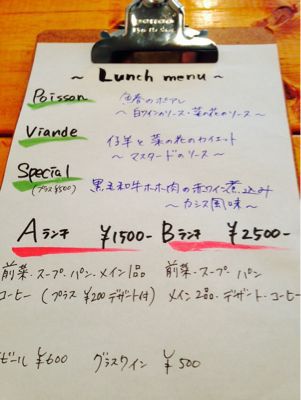 ~ Lunch menu ~
Poisson 魚春のポアレ
~ 白ワインのソース・菜の花のソース ~
Viande 仔羊と菜の花のカイエット
~ マスタードのソース ~
Special 黒毛和牛ホホ肉の赤ワイン煮込み
(プラス¥500) ~ カシス風味 ~
Aランチ ¥1500- Bランチ ¥2500-
前菜・スープ・パン・メイン1品 前菜・スープ・パン
コーヒー (プラス ¥200 デザート付) メイン2品・デザート・コーヒー
ビール ¥600 グラスワイン ¥500